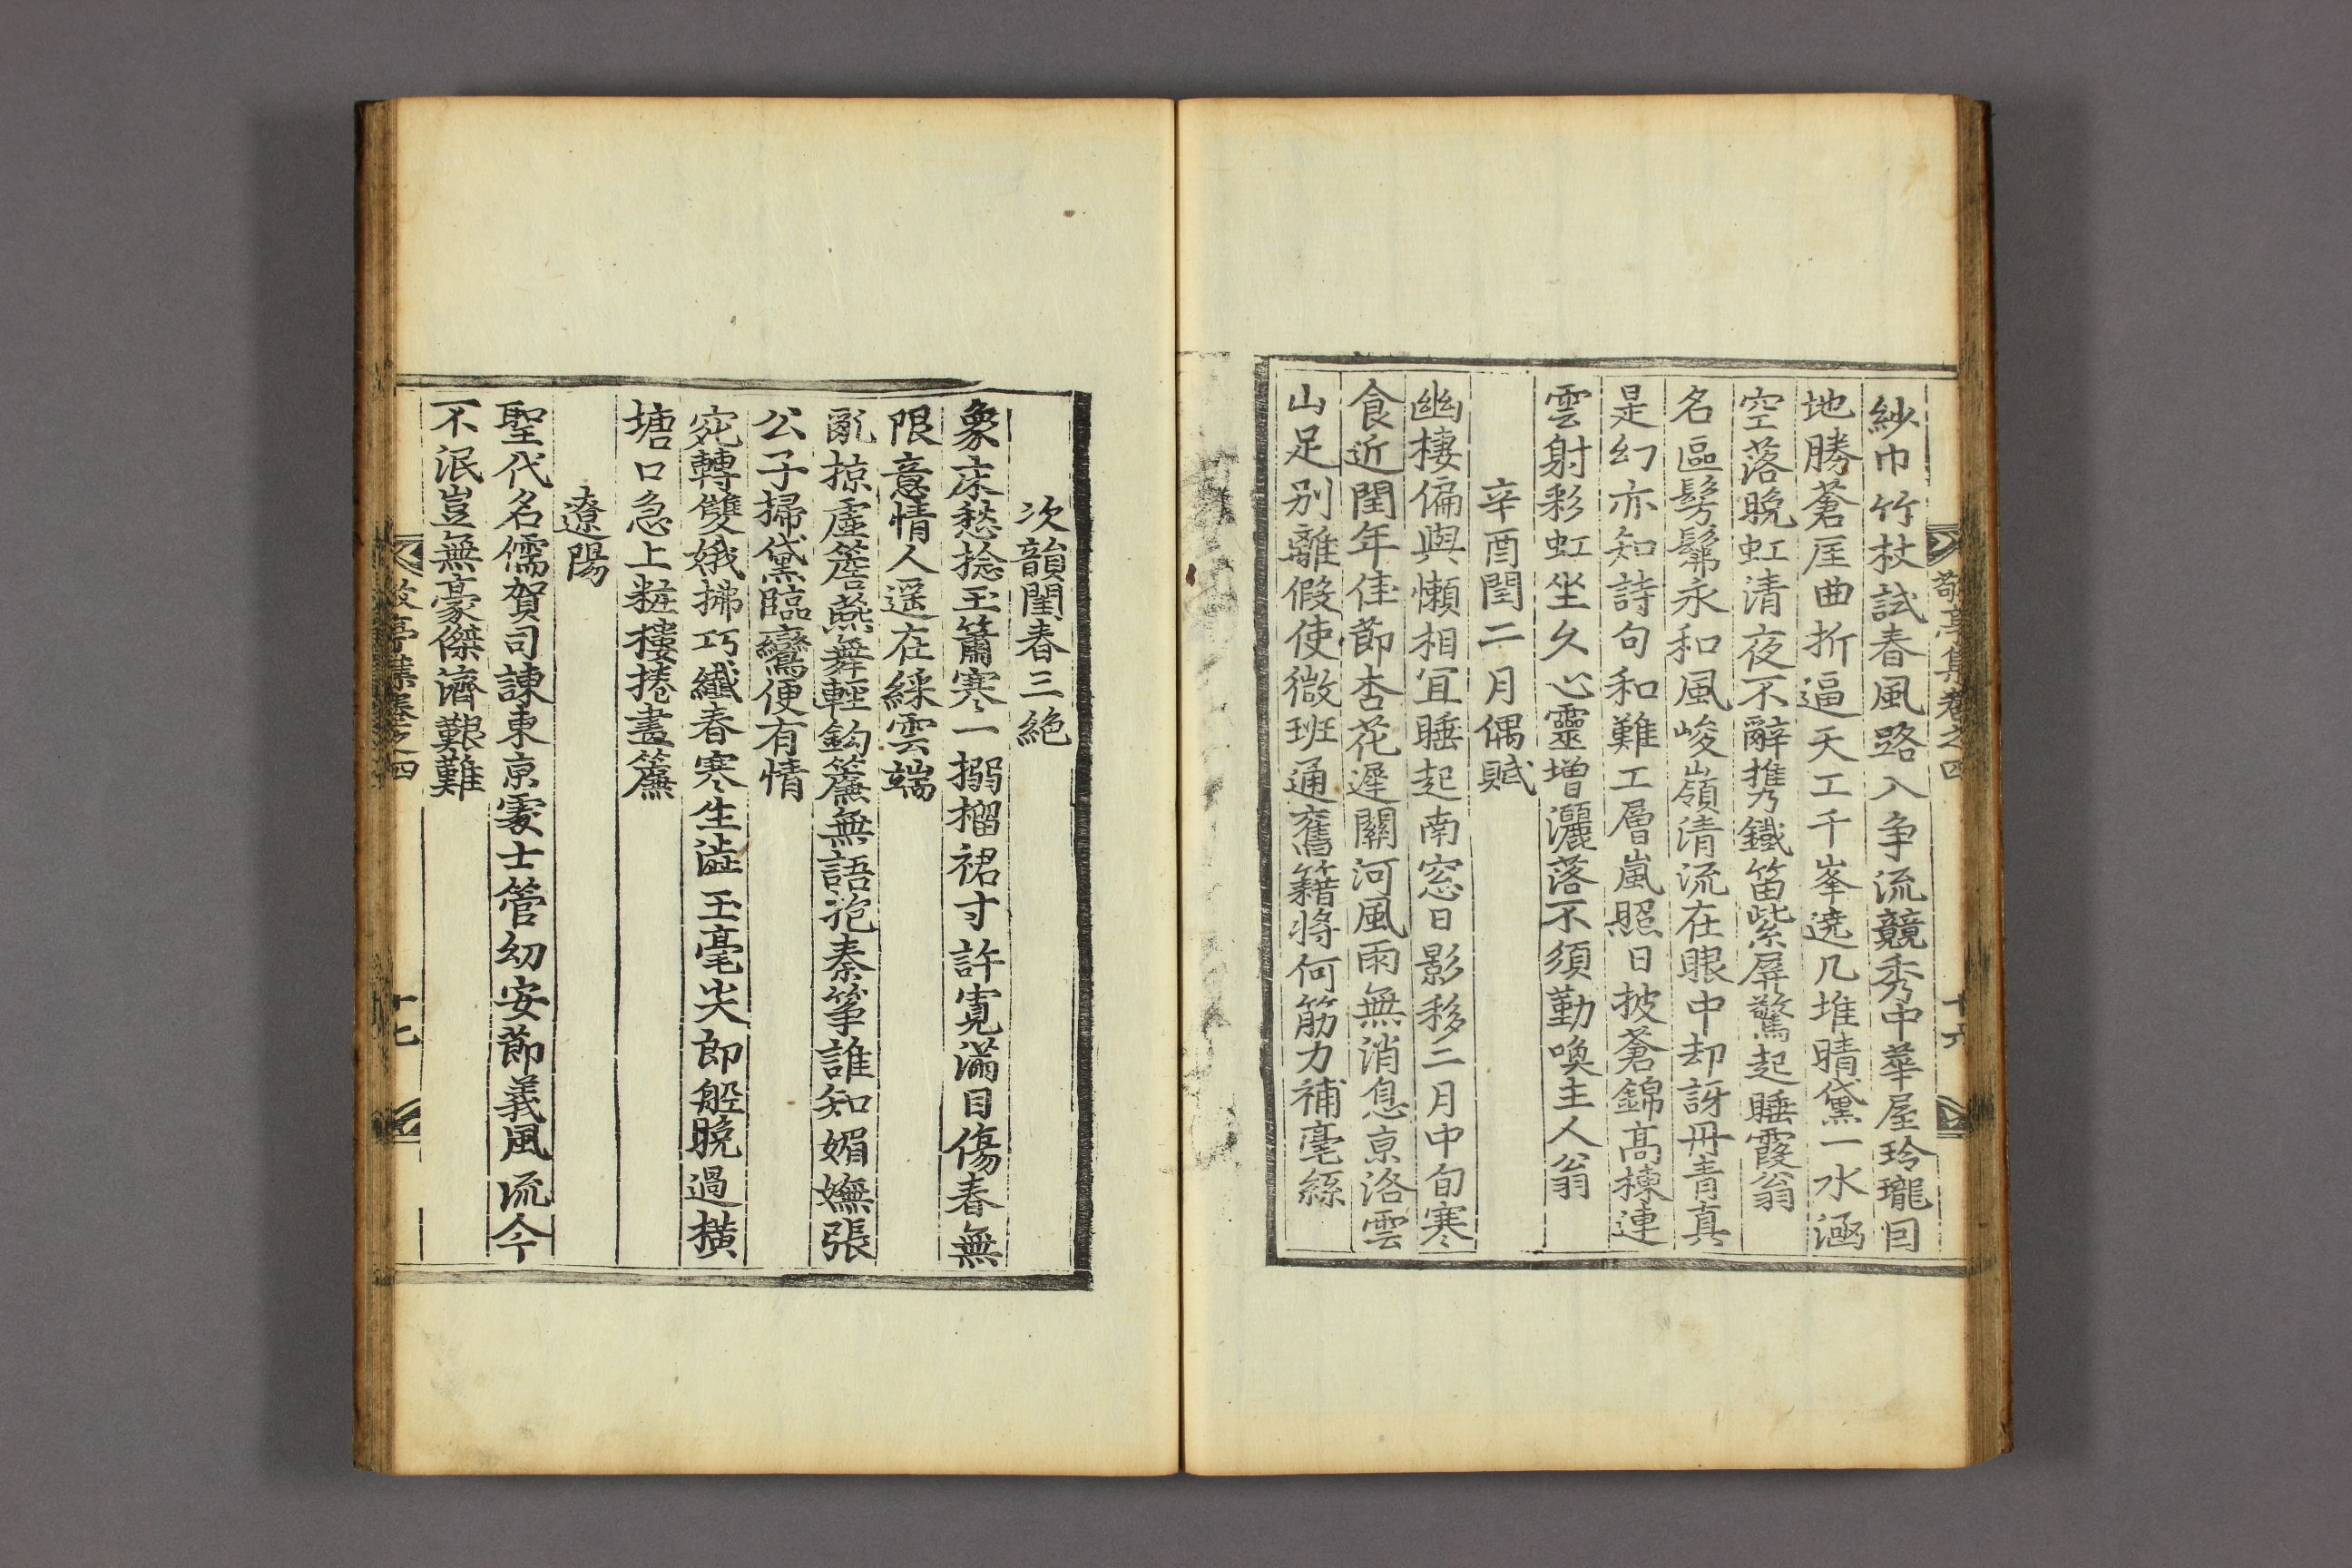 敬亭集卷之四
十六
紗巾竹杖試春風路入争流競秀中華屋玲瓏囙
地勝蒼厓曲折逼天工千峯遶几堆晴黛一水涵
空落晩虹清夜不辭携鐵笛紫屏驚起睡霞翁
名區髣髴永和風峻嶺清流在眼中却訝丹青真
是幻亦知詩句和難工層嵐照日披蒼錦高棟連
雲射彩虹坐久心靈增灑落不須勤喚主人翁
辛酉閏二月偶賦
幽棲偏與懶相冝睡起南窓日影移二月中旬寒
食近閏年佳節杏花遲關河風雨無消息京洛雲
山足别離假使微班通舊籍將何筋力補毫絲
次韻閨春三絶
象床愁捻玉簫寒一搦榴裙寸許寛滿目傷春無
限意情人遥在綵雲端
亂掠虛簷燕舞輕鈎簾無語抱秦箏誰知媚嫵張
公子掃黛臨鸞便有情
宛轉雙娥拂巧纖春寒生澁玉毫尖郎船晩過横
塘口急上粧樓捲畫簾
遼陽
聖代名儒賀司諫東京處士管幼安節義風流今
不泯豈無豪傑濟艱難
敬亭集卷之四
十七